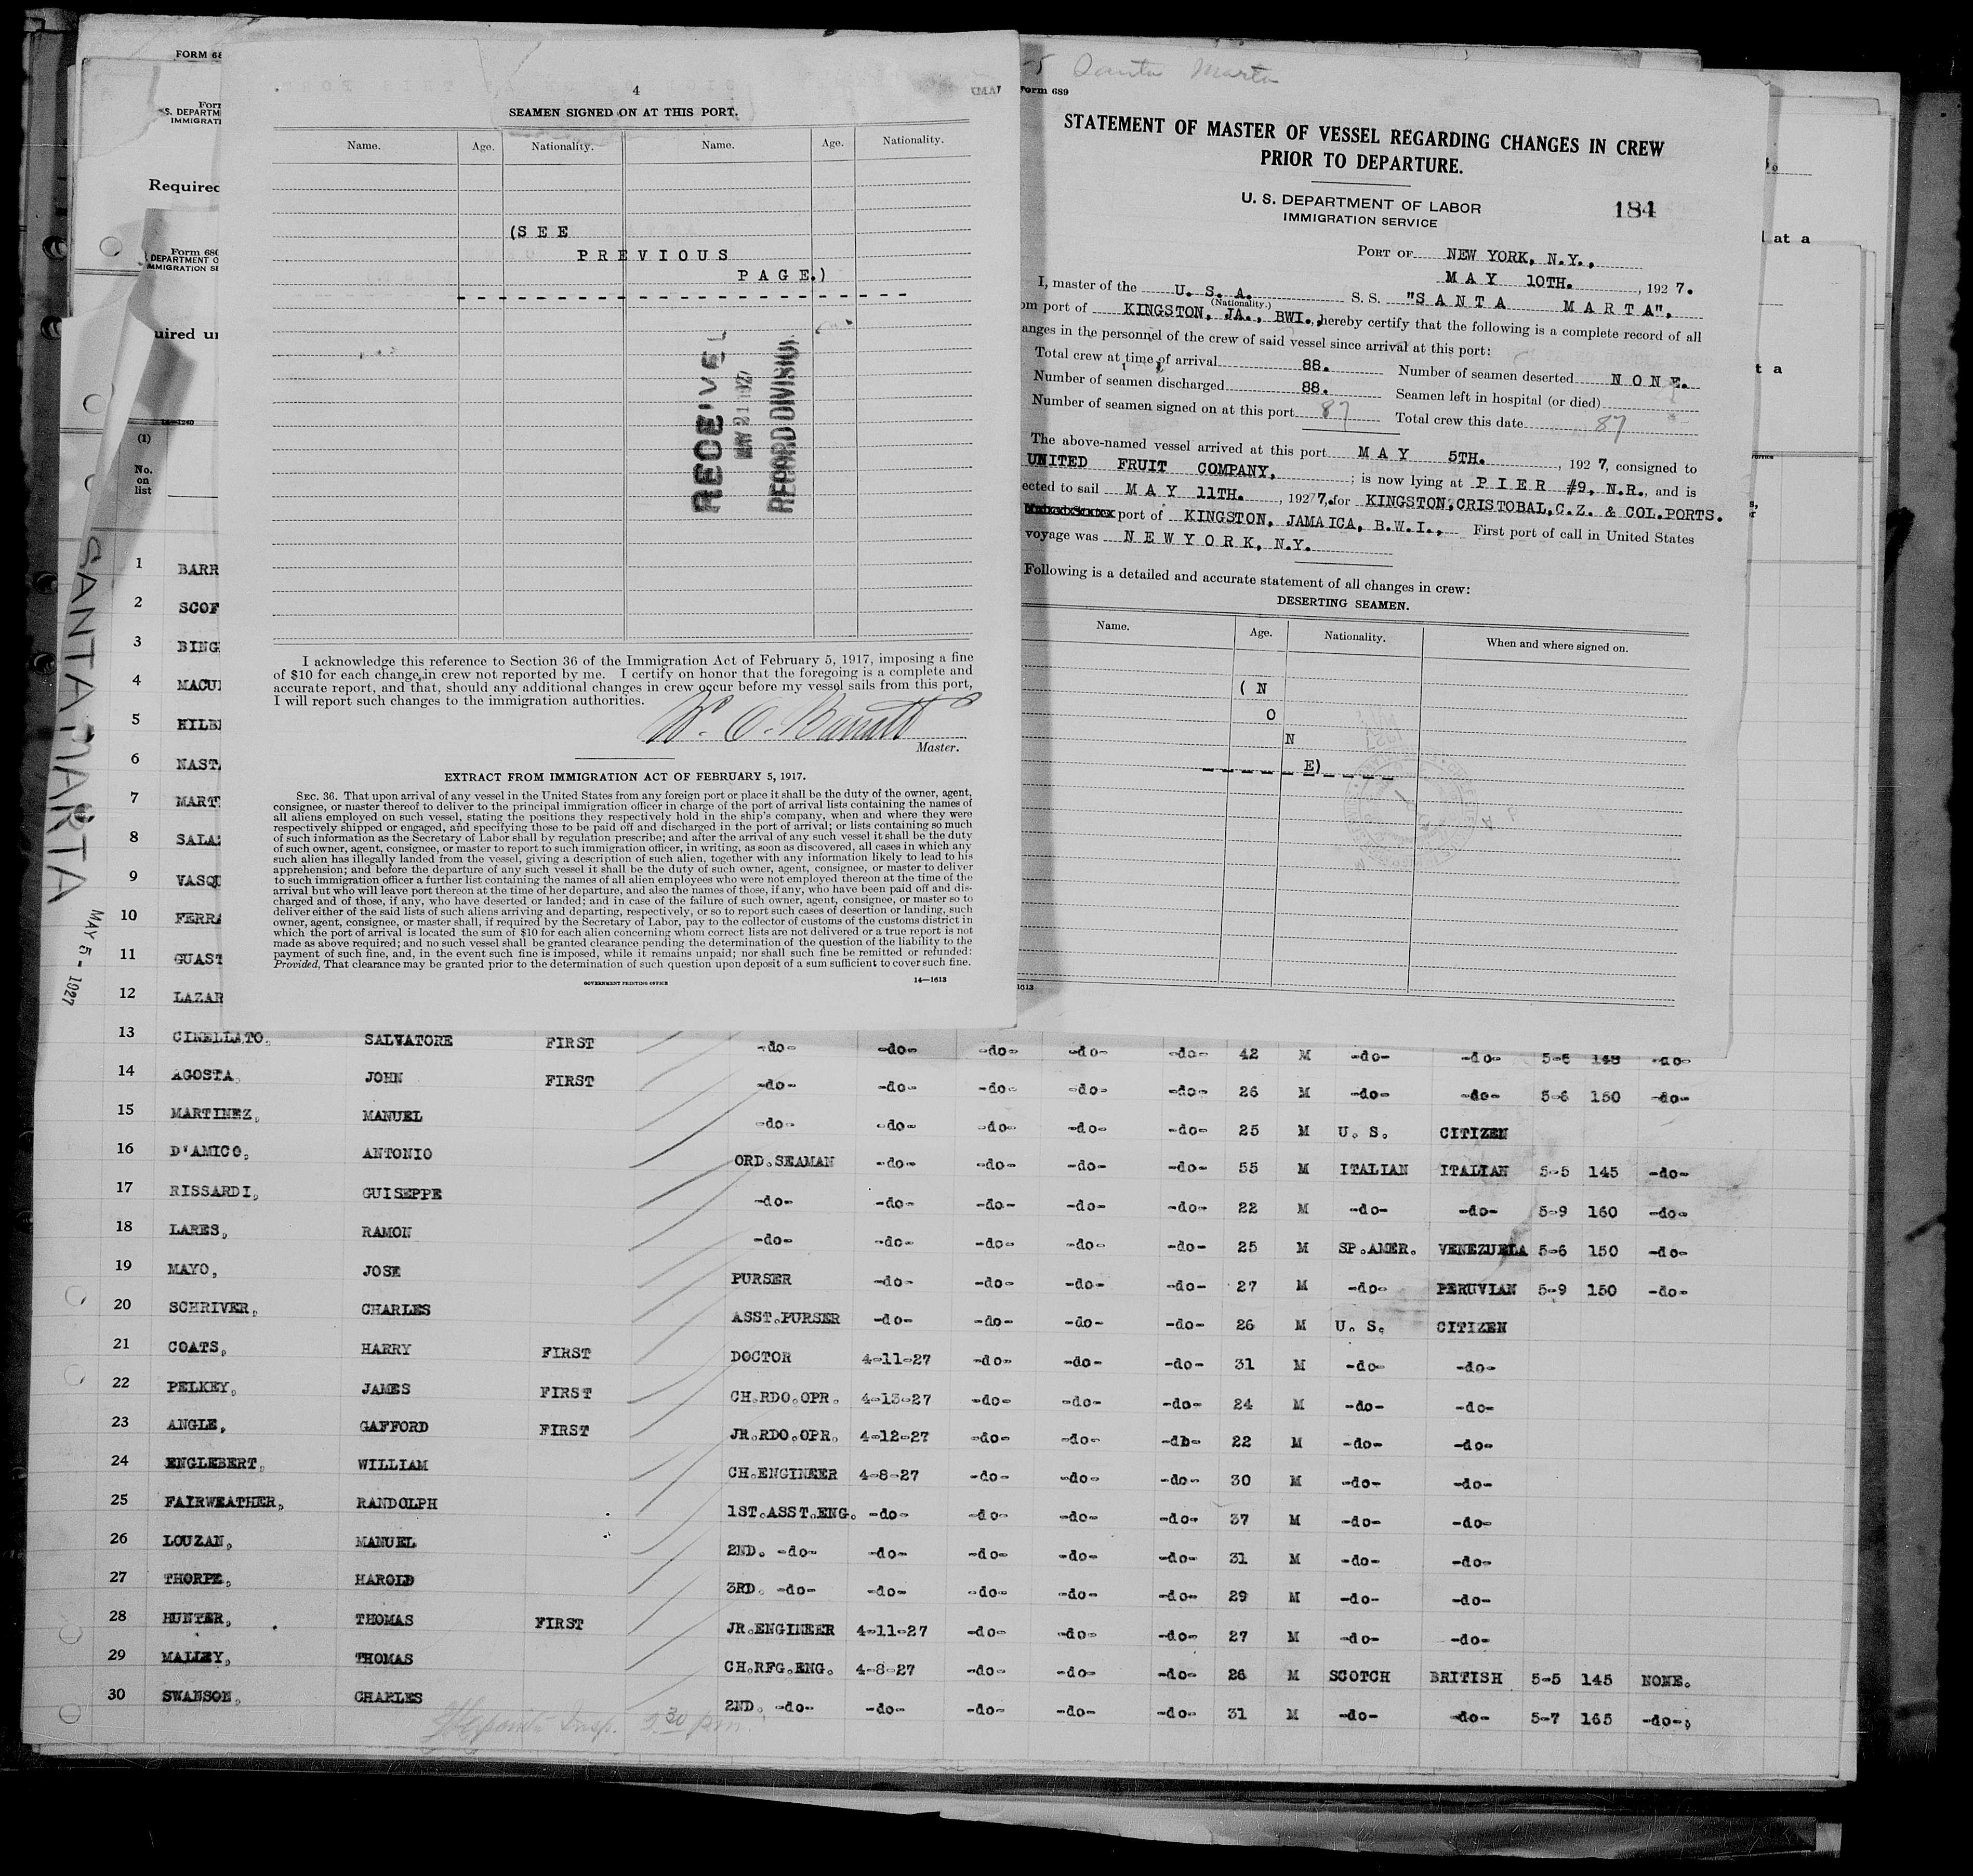 FORM 68
Form
S. DEPARTM
IMMIGRATI
Required
Form 680
DEPARTMENT O
IMMIGRATION SE
uired un
14—1240
(1)
No.
on
list
SANTA MARTA
MAY 5 - 1927
4
SEAMEN SIGNED ON AT THIS PORT.
Name. Age. Nationality. Name. Age. Nationality.
(SEE
PREVIOUS
PAGE.)
RECEIVED
MAY 21 1927
RECORD DIVISION
I acknowledge this reference to Section 36 of the Immigration Act of February 5, 1917, imposing a fine
of $10 for each change in crew not reported by me. I certify on honor that the foregoing is a complete and
accurate report, and that, should any additional changes in crew occur before my vessel sails from this port,
I will report such changes to the immigration authorities.
W. O. Barrett
Master.
EXTRACT FROM IMMIGRATION ACT OF FEBRUARY 5, 1917.
SEC. 36. That upon arrival of any vessel in the United States from any foreign port or place it shall be the duty of the owner, agent,
consignee, or master thereof to deliver to the principal immigration officer in charge of the port of arrival lists containing the names of
all aliens employed on such vessel, stating the positions they respectively hold in the ship's company, when and where they were
respectively shipped or engaged, and specifying those to be paid off and discharged in the port of arrival; or lists containing so much
of such information as the Secretary of Labor shall by regulation prescribe; and after the arrival of any such vessel it shall be the duty
of such owner, agent, consignee, or master to report to such immigration officer, in writing, as soon as discovered, all cases in which any
such alien has illegally landed from the vessel, giving a description of such alien, together with any information likely to lead to his
apprehension; and before the departure of any such vessel it shall be the duty of such owner, agent, consignee, or master to deliver
to such immigration officer a further list containing the names of all alien employees who were not employed thereon at the time of the
arrival but who will leave port thereon at the time of her departure, and also the names of those, if any, who have been paid off and dis-
charged and of those, if any, who have deserted or landed; and in case of the failure of such owner, agent, consignee, or master so to
deliver either of the said lists of such aliens arriving and departing, respectively, or so to report such cases of desertion or landing, such
owner, agent, consignee, or master shall, if required by the Secretary of Labor, pay to the collector of customs of the customs district in
which the port of arrival is located the sum of $10 for each alien concerning whom correct lists are not delivered or a true report is not
made as above required; and no such vessel shall be granted clearance pending the determination of the question of the liability to the
payment of such fine, and, in the event such fine is imposed, while it remains unpaid; nor shall such fine be remitted or refunded:
Provided, That clearance may be granted prior to the determination of such question upon deposit of a sum sufficient to cover such fine.
GOVERNMENT PRINTING OFFICE 14—1613
Santa Marta
Form 689
STATEMENT OF MASTER OF VESSEL REGARDING CHANGES IN CREW
PRIOR TO DEPARTURE.
U. S. DEPARTMENT OF LABOR
IMMIGRATION SERVICE
184
PORT OF NEW YORK, N.Y.,
MAY 10TH. , 1927.
I, master of the U. S. A. S. S. "SANTA MARTA",
(Nationality.)
om port of KINGSTON, JA., BWI., hereby certify that the following is a complete record of all
anges in the personnel of the crew of said vessel since arrival at this port:
Total crew at time of arrival 88. Number of seamen deserted NONE.
Number of seamen discharged 88. Seamen left in hospital (or died)
Number of seamen signed on at this port 87 Total crew this date 87
The above-named vessel arrived at this port MAY 5TH. , 1927, consigned to
UNITED FRUIT COMPANY, ; is now lying at PIER #9, N.R., and is
ected to sail MAY 11TH. , 1927 7, for KINGSTON, CRISTOBAL, C.Z. & COL.PORTS.
port of KINGSTON, JAMAICA, B.W.I., First port of call in United States
voyage was NEW YORK, N.Y.
Following is a detailed and accurate statement of all changes in crew:
DESERTING SEAMEN.
Name. Age. Nationality. When and where signed on.
(N
O
N
E)
1613
at a
t a
1 BARR
2 SCOF
3 BING
4 MACU
5 HILB
6 NAST
7 MART
8 SALA
9 VASQ
10 FERRA
11 GUAST
12 LAZAR
13 CINELLATO, SALVATORE FIRST -do- -do- -do- -do- -do- 42 M -do- -do- 5-6 148 -do-
14 AGOSTA, JOHN FIRST -do- -do- -do- -do- -do- 26 M -do- -do- 5-6 150 -do-
15 MARTINEZ, MANUEL -do- -do- -do- -do- -do- 25 M U. S. CITIZEN
16 D'AMICO, ANTONIO ORD.SEAMAN -do- -do- -do- -do- 55 M ITALIAN ITALIAN 5-5 145 -do-
17 RISSARDI, GUISEPPE -do- -do- -do- -do- -do- 22 M -do- -do- 5-9 160 -do-
18 LARES, RAMON -do- -do- -do- -do- -do- 25 M SP.AMER. VENEZUELA 5-6 150 -do-
19 MAYO, JOSE PURSER -do- -do- -do- -do- 27 M -do- PERUVIAN 5-9 150 -do-
20 SCHRIVER, CHARLES ASST.PURSER -do- -do- -do- -do- 26 M U. S. CITIZEN
21 COATS, HARRY FIRST DOCTOR 4-11-27 -do- -do- -do- 31 M -do- -do-
22 PELKEY, JAMES FIRST CH.RDO.OPR. 4-13-27 -do- -do- -do- 24 M -do- -do-
23 ANGLE, GAFFORD FIRST JR.RDO.OPR. 4-12-27 -do- -do- -db- 22 M -do- -do-
24 ENGLEBERT, WILLIAM CH.ENGINEER 4-8-27 -do- -do- -do- 30 M -do- -do-
25 FAIRWEATHER, RANDOLPH 1ST.ASST.ENG. -do- -do- -do- -do- 37 M -do- -do-
26 LOUZAN, MANUEL 2ND. -do- -do- -do- -do- -do- 31 M -do- -do-
27 THORPE, HAROLD 3RD. -do- -do- -do- -do- -do- 29 M -do- -do-
28 HUNTER, THOMAS FIRST JR.ENGINEER 4-11-27 -do- -do- -do- 27 M -do- -do-
29 MALLEY, THOMAS CH.RFG.ENG. 4-8-27 -do- -do- -do- 26 M SCOTCH BRITISH 5-5 145 NONE.
30 SWANSON, CHARLES 2ND. -do- -do- -do- -do- -do- 31 M -do- -do- 5-7 165 -do-
Insp. 5.30 pm.